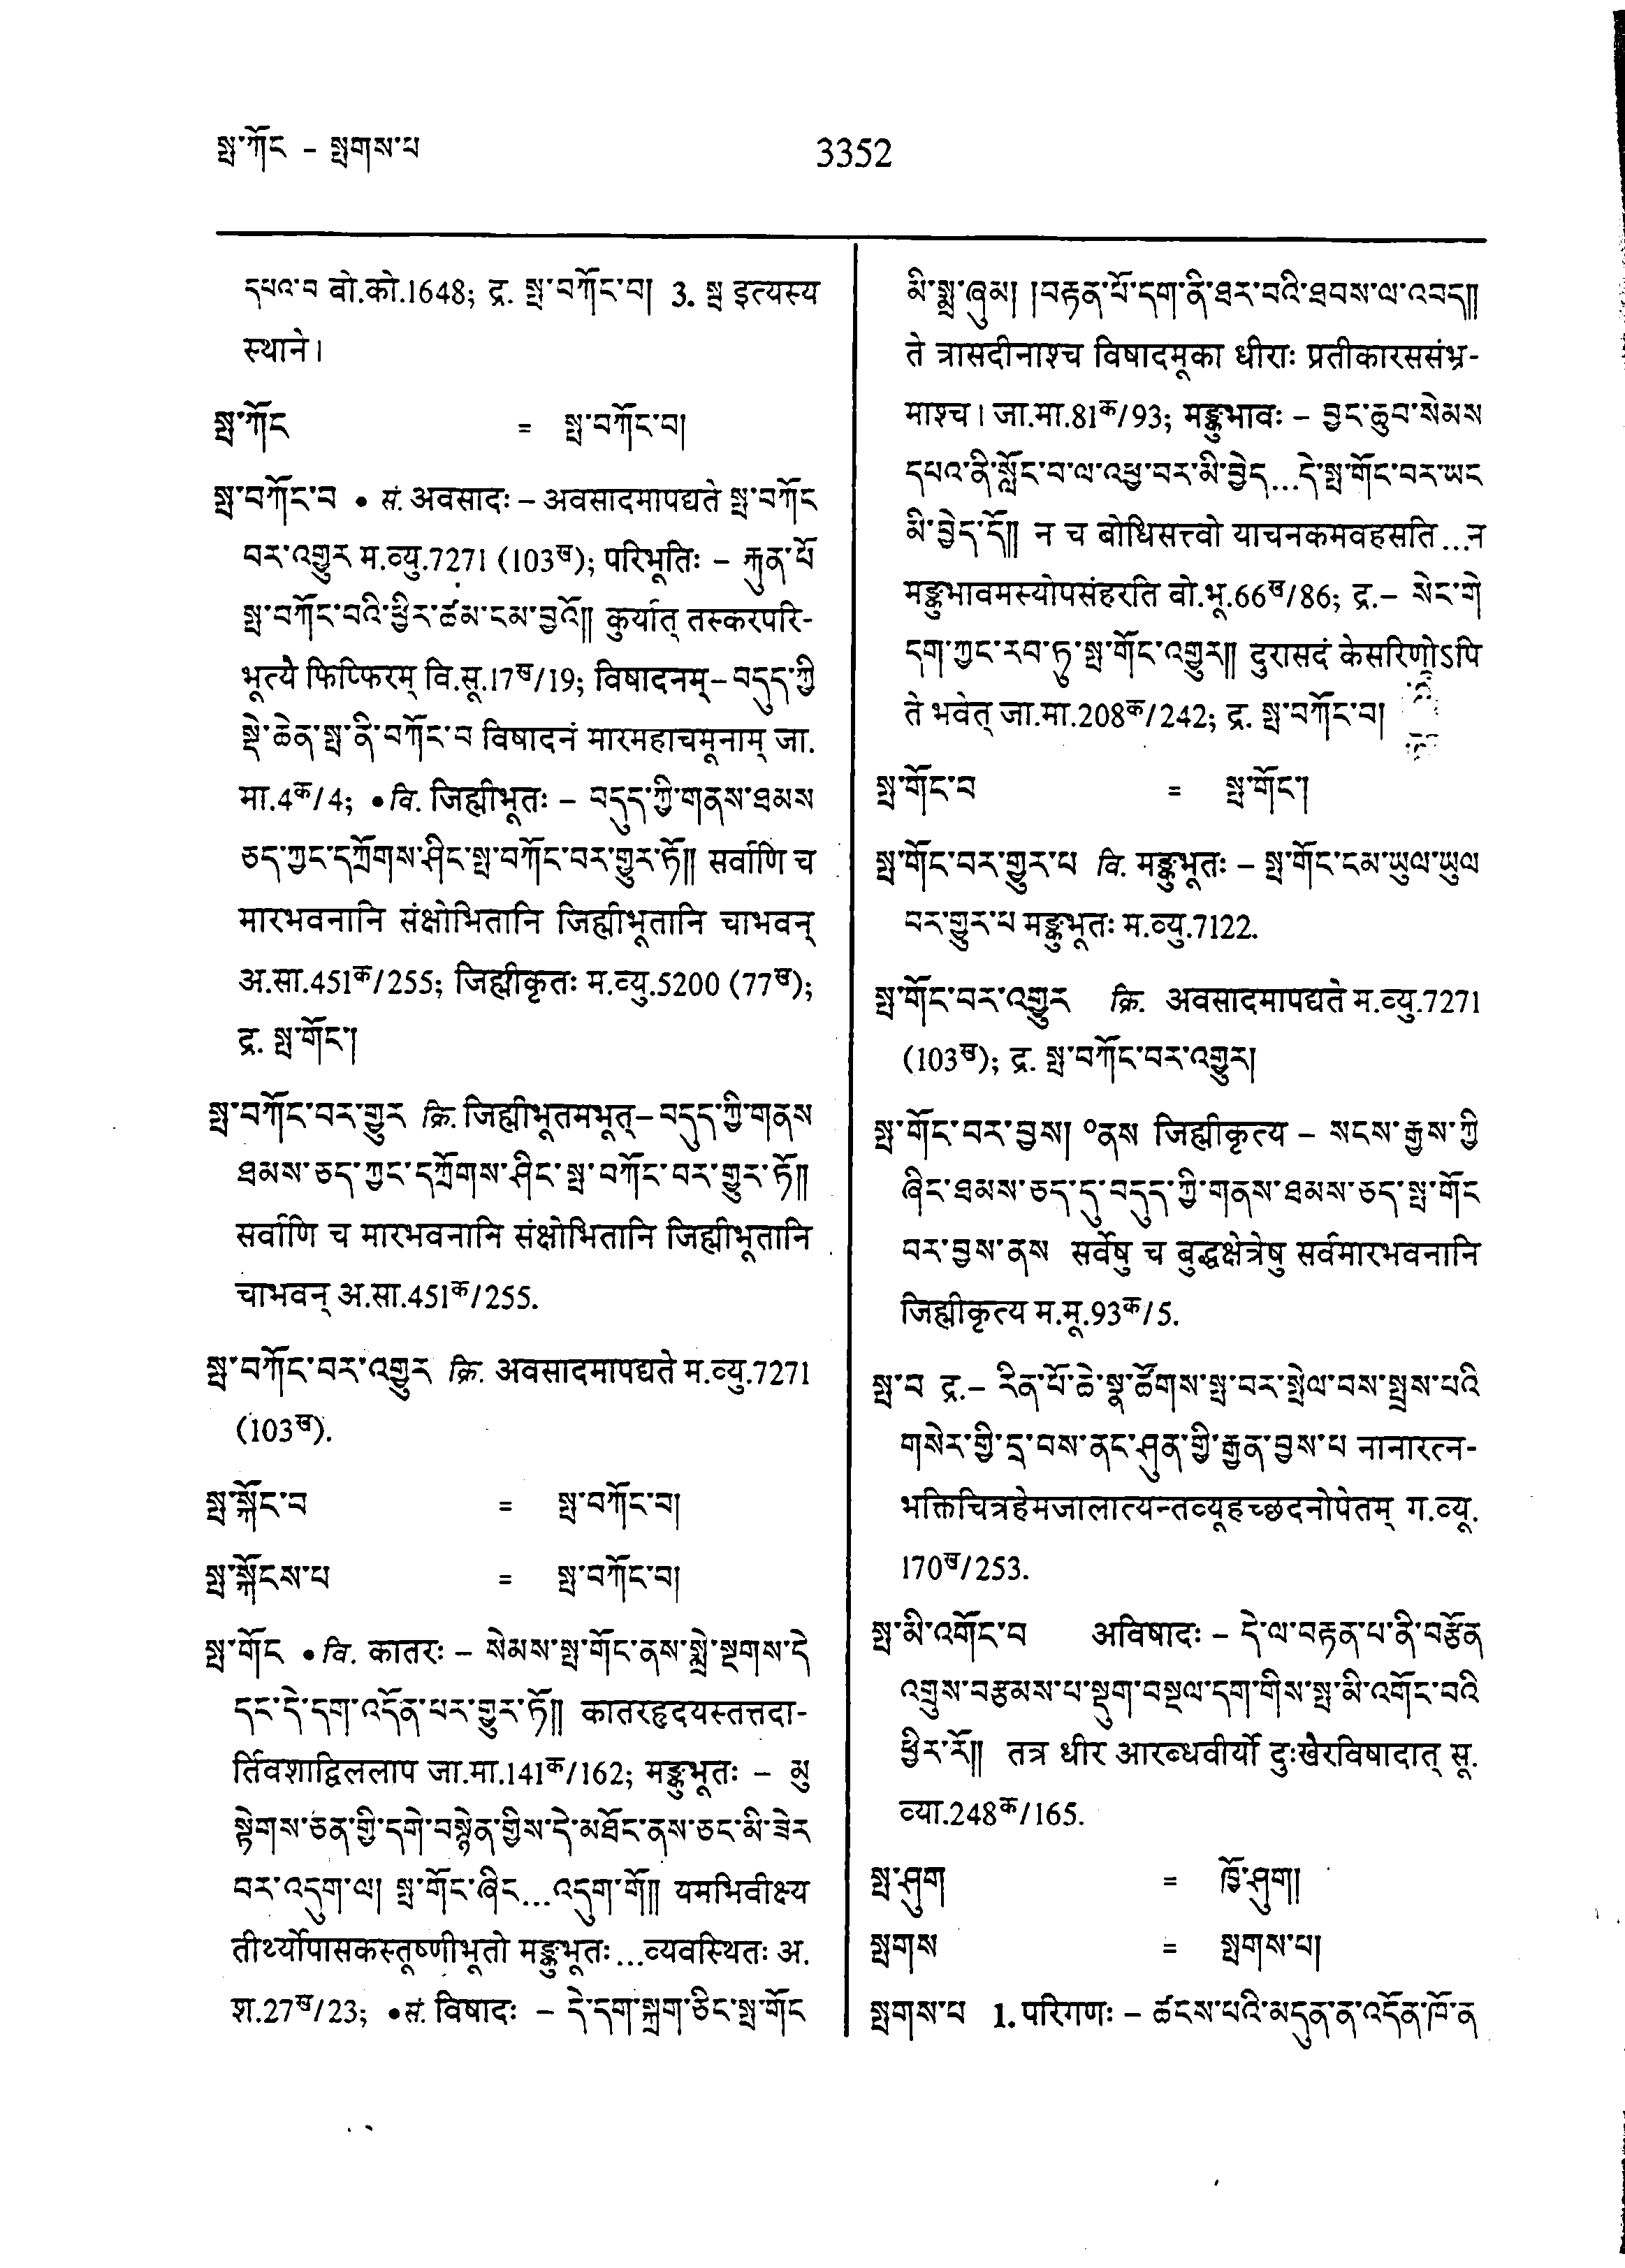 སྤ་ཀོང – སྤགས་པ
3352
དཔའ་བ बो.को.1648; द्र. སྤ་བཀོང་བ། 3. སྤྲ इत्यस्य
स्थाने।
སྤ་ཀོང = སྤ་བཀོང་བ།
སྤ་བཀོང་བ • सं. अवसादः – अवसादमापद्यते སྤ་བཀོང
བར་འགྱུར म.व्यु.7271 (103ख); परिभूतिः – རྐུན་པོ
སྤ་བཀོང་བའི་ཕྱིར་ཚམ་ངམ་བྱའོ༎ कुर्यात् तस्करपरि-
भूत्यै फिप्फिरम् वि.सू.17ख/19; विषादनम् – བདུད་ཀྱི
སྡེ་ཆེན་སྤ་ནི་བཀོང་བ विषादनं मारमहाचमूनाम् जा.
मा.4क/4; • वि. जिह्मीभूतः – བདུད་ཀྱི་གནས་ཐམས
ཅད་ཀྱང་དཀྲོགས་ཤིང་སྤ་བཀོང་བར་གྱུར་ཏོ༎ सर्वाणि च
मारभवनानि संक्षोभितानि जिह्मीभूतानि चाभवन्
अ.सा.451क/255; जिह्मीकृतः म.व्यु.5200 (77ख);
द्र. སྤ་གོང་།
སྤ་བཀོང་བར་གྱུར क्रि. जिह्मीभूतमभूत् – བདུད་ཀྱི་གནས
ཐམས་ཅད་ཀྱང་དཀྲོགས་ཤིང་སྤ་བཀོང་བར་གྱུར་ཏོ༎
सर्वाणि च मारभवनानि संक्षोभितानि जिह्मीभूतानि
चाभवन् अ.सा.451क/255.
སྤ་བཀོང་བར་འགྱུར क्रि. अवसादमापद्यते म.व्यु.7271
(103ख).
སྤ་སྐོང་བ = སྤ་བཀོང་བ།
སྤ་སྐོངས་པ = སྤ་བཀོང་བ།
སྤ་གོང • वि. कातरः – སེམས་སྤ་གོང་ནས་སྨྲེ་སྔགས་དེ
དང་དེ་དག་འདོན་པར་གྱུར་ཏོ༎ कातरहृदयस्तत्तदा-
र्तिवशाद्विललाप जा.मा.141क/162; मङ्कुभूतः – མུ
སྟེགས་ཅན་གྱི་དགེ་བསྙེན་གྱིས་དེ་མཐོང་ནས་ཅང་མི་ཟེར
བར་འདུག་ལ། སྤ་གོང་ཞིང...འདུག་གོ༎ यमभिवीक्ष्य
तीर्थ्योपासकस्तूष्णीभूतो मङ्कुभूतः...व्यवस्थितः अ.
श.27ख/23; • सं. विषादः – དེ་དག་སྐྲག་ཅིང་སྤ་གོང
མི་སྨྲ་ཞུམ། །བརྟན་པོ་དག་ནི་ཐར་བའི་ཐབས་ལ་འབད༎
ते त्रासदीनाश्च विषादमूका धीराः प्रतीकारससंभ्र-
माश्च। जा.मा.81क/93; मङ्कुभावः – བྱང་ཆུབ་སེམས
དཔའ་ནི་སློང་བ་ལ་འཕྱ་བར་མི་བྱེད...དེ་སྤ་གོང་བར་ཡང
མི་བྱེད་དོ༎ न च बोधिसत्त्वो याचनकमवहसति...न
मङ्कुभावमस्योपसंहरति बो.भू.66ख/86; द्र.– སེང་གེ
དག་ཀྱང་རབ་ཏུ་སྤ་གོང་འགྱུར༎ दुरासदं केसरिणोऽपि
ते भवेत् जा.मा.208क/242; द्र. སྤ་བཀོང་བ།
སྤ་གོང་བ = སྤ་གོང་།
སྤ་གོང་བར་གྱུར་པ वि. मङ्कुभूतः – སྤ་གོང་ངམ་ཡུལ་ཡུལ
བར་གྱུར་པ मङ्कुभूतः म.व्यु.7122.
སྤ་གོང་བར་འགྱུར क्रि. अवसादमापद्यते म.व्यु.7271
(103ख); द्र. སྤ་བཀོང་བར་འགྱུར།
སྤ་གོང་བར་བྱས། °ནས जिह्मीकृत्य – སངས་རྒྱས་ཀྱི
ཞིང་ཐམས་ཅད་དུ་བདུད་ཀྱི་གནས་ཐམས་ཅད་སྤ་གོང
བར་བྱས་ནས सर्वेषु च बुद्धक्षेत्रेषु सर्वमारभवनानि
जिह्मीकृत्य म.मू.93क/5.
སྤ་བ द्र.– རིན་པོ་ཆེ་སྣ་ཚོགས་སྤ་བར་སྤེལ་བས་སྤྲས་པའི
གསེར་གྱི་དྲ་བས་ནང་ཤུན་གྱི་རྒྱན་བྱས་པ नानारत्न-
भक्तिचित्रहेमजालात्यन्तव्यूहच्छदनोपेतम् ग.व्यू.
170ख/253.
སྤ་མི་འགོང་བ अविषादः – དེ་ལ་བརྟན་པ་ནི་བརྩོན
འགྲུས་བརྩམས་པ་སྡུག་བསྔལ་དག་གིས་སྤ་མི་འགོང་བའི
ཕྱིར་རོ༎ तत्र धीर आरब्धवीर्यो दुःखैरविषादात् सू.
व्या.248क/165.
སྤ་ཤུག = ཁྲོ་ཤུག།
སྤགས = སྤགས་པ།
སྤགས་པ 1. परिगणः – ཚངས་པའི་མདུན་ན་འདོན་ཁོ་ན